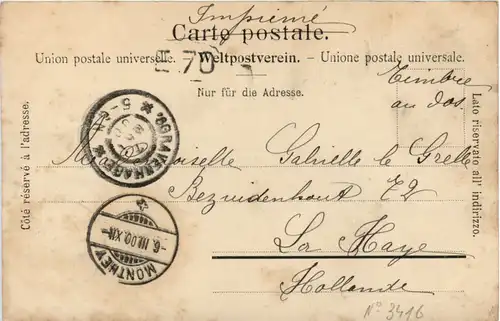 Imprimé
Carte postale.
E 70
Union postale universelle. - Weltpostverein. - Unione postale universale.
Nur für die Adresse.
Timbre
au dos
Côté réservé à l'adresse.
Lato riservato all' indirizzo.
'SGRAVENHAGE
Mademoiselle Gabrielle le Grelle
Bezuidenhout 72
La Haye
Hollande
MONTHEY
6.III.00.XII
No 3416